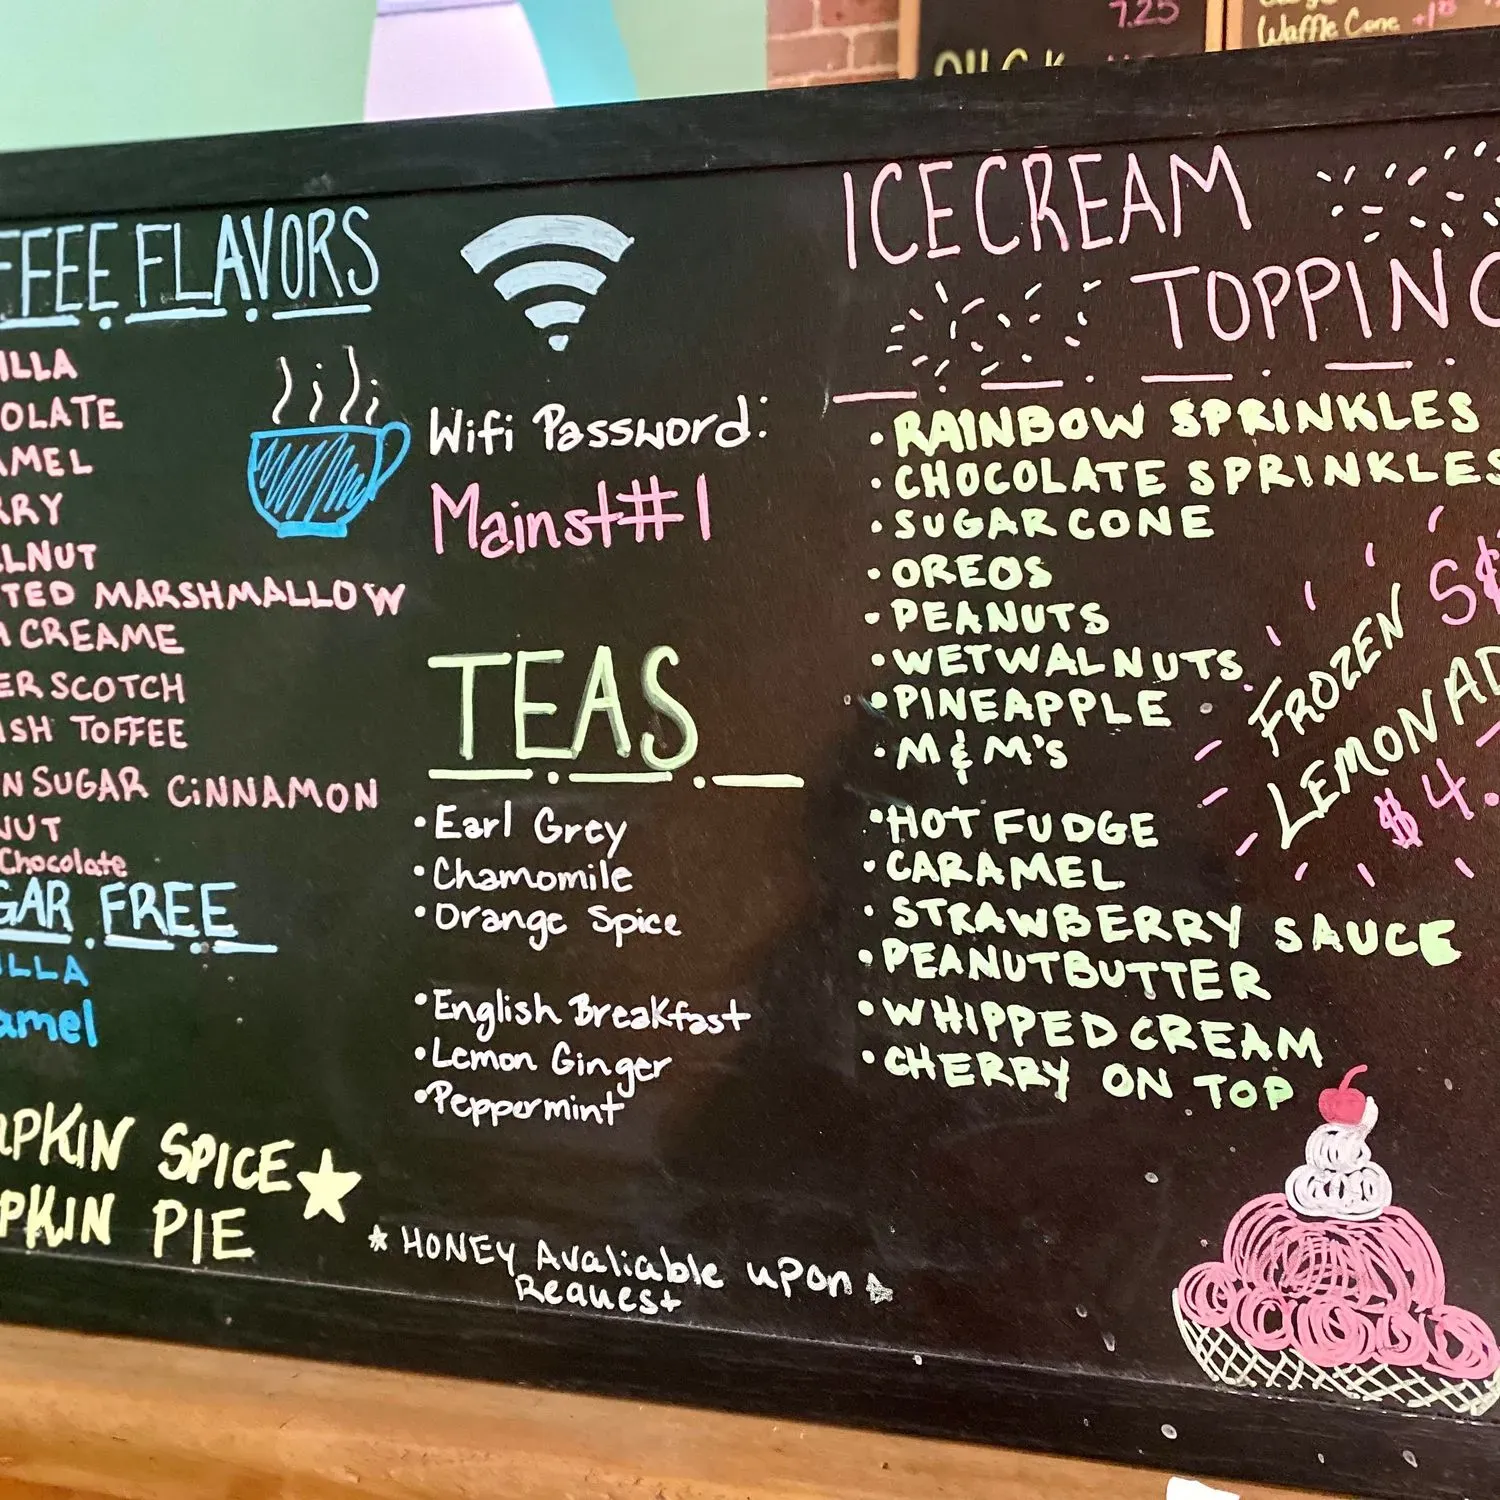 7.25
Waffle Cone
FFEE FLAVORS
ILLA
OLATE
AMEL
RRY
LNUT
TED MARSHMALLOW
CREAME
ER SCOTCH
ISH TOFFEE
N SUGAR CiNNAMON
NUT
Chocolate
GAR FREE
ILLA
amel
PKIN SPICE
PKIN PIE
Wifi Password:
Mainst#1
TEAS
• Earl Grey
• Chamomile
• Orange Spice
• English Breakfast
• Lemon Ginger
• Peppermint
* HONEY Avaliable upon
Request
ICECREAM
TOPPING
• RAINBOW SPRINKLES
• CHOCOLATE SPRINKLES
• SUGAR CONE
• OREOS
• PEANUTS
• WETWALNUTS
• PINEAPPLE
• M & M's
• HOT FUDGE
• CARAMEL
• STRAWBERRY SAUCE
• PEANUTBUTTER
• WHIPPED CREAM
• CHERRY ON TOP
FROZEN
LEMONAD
$4.